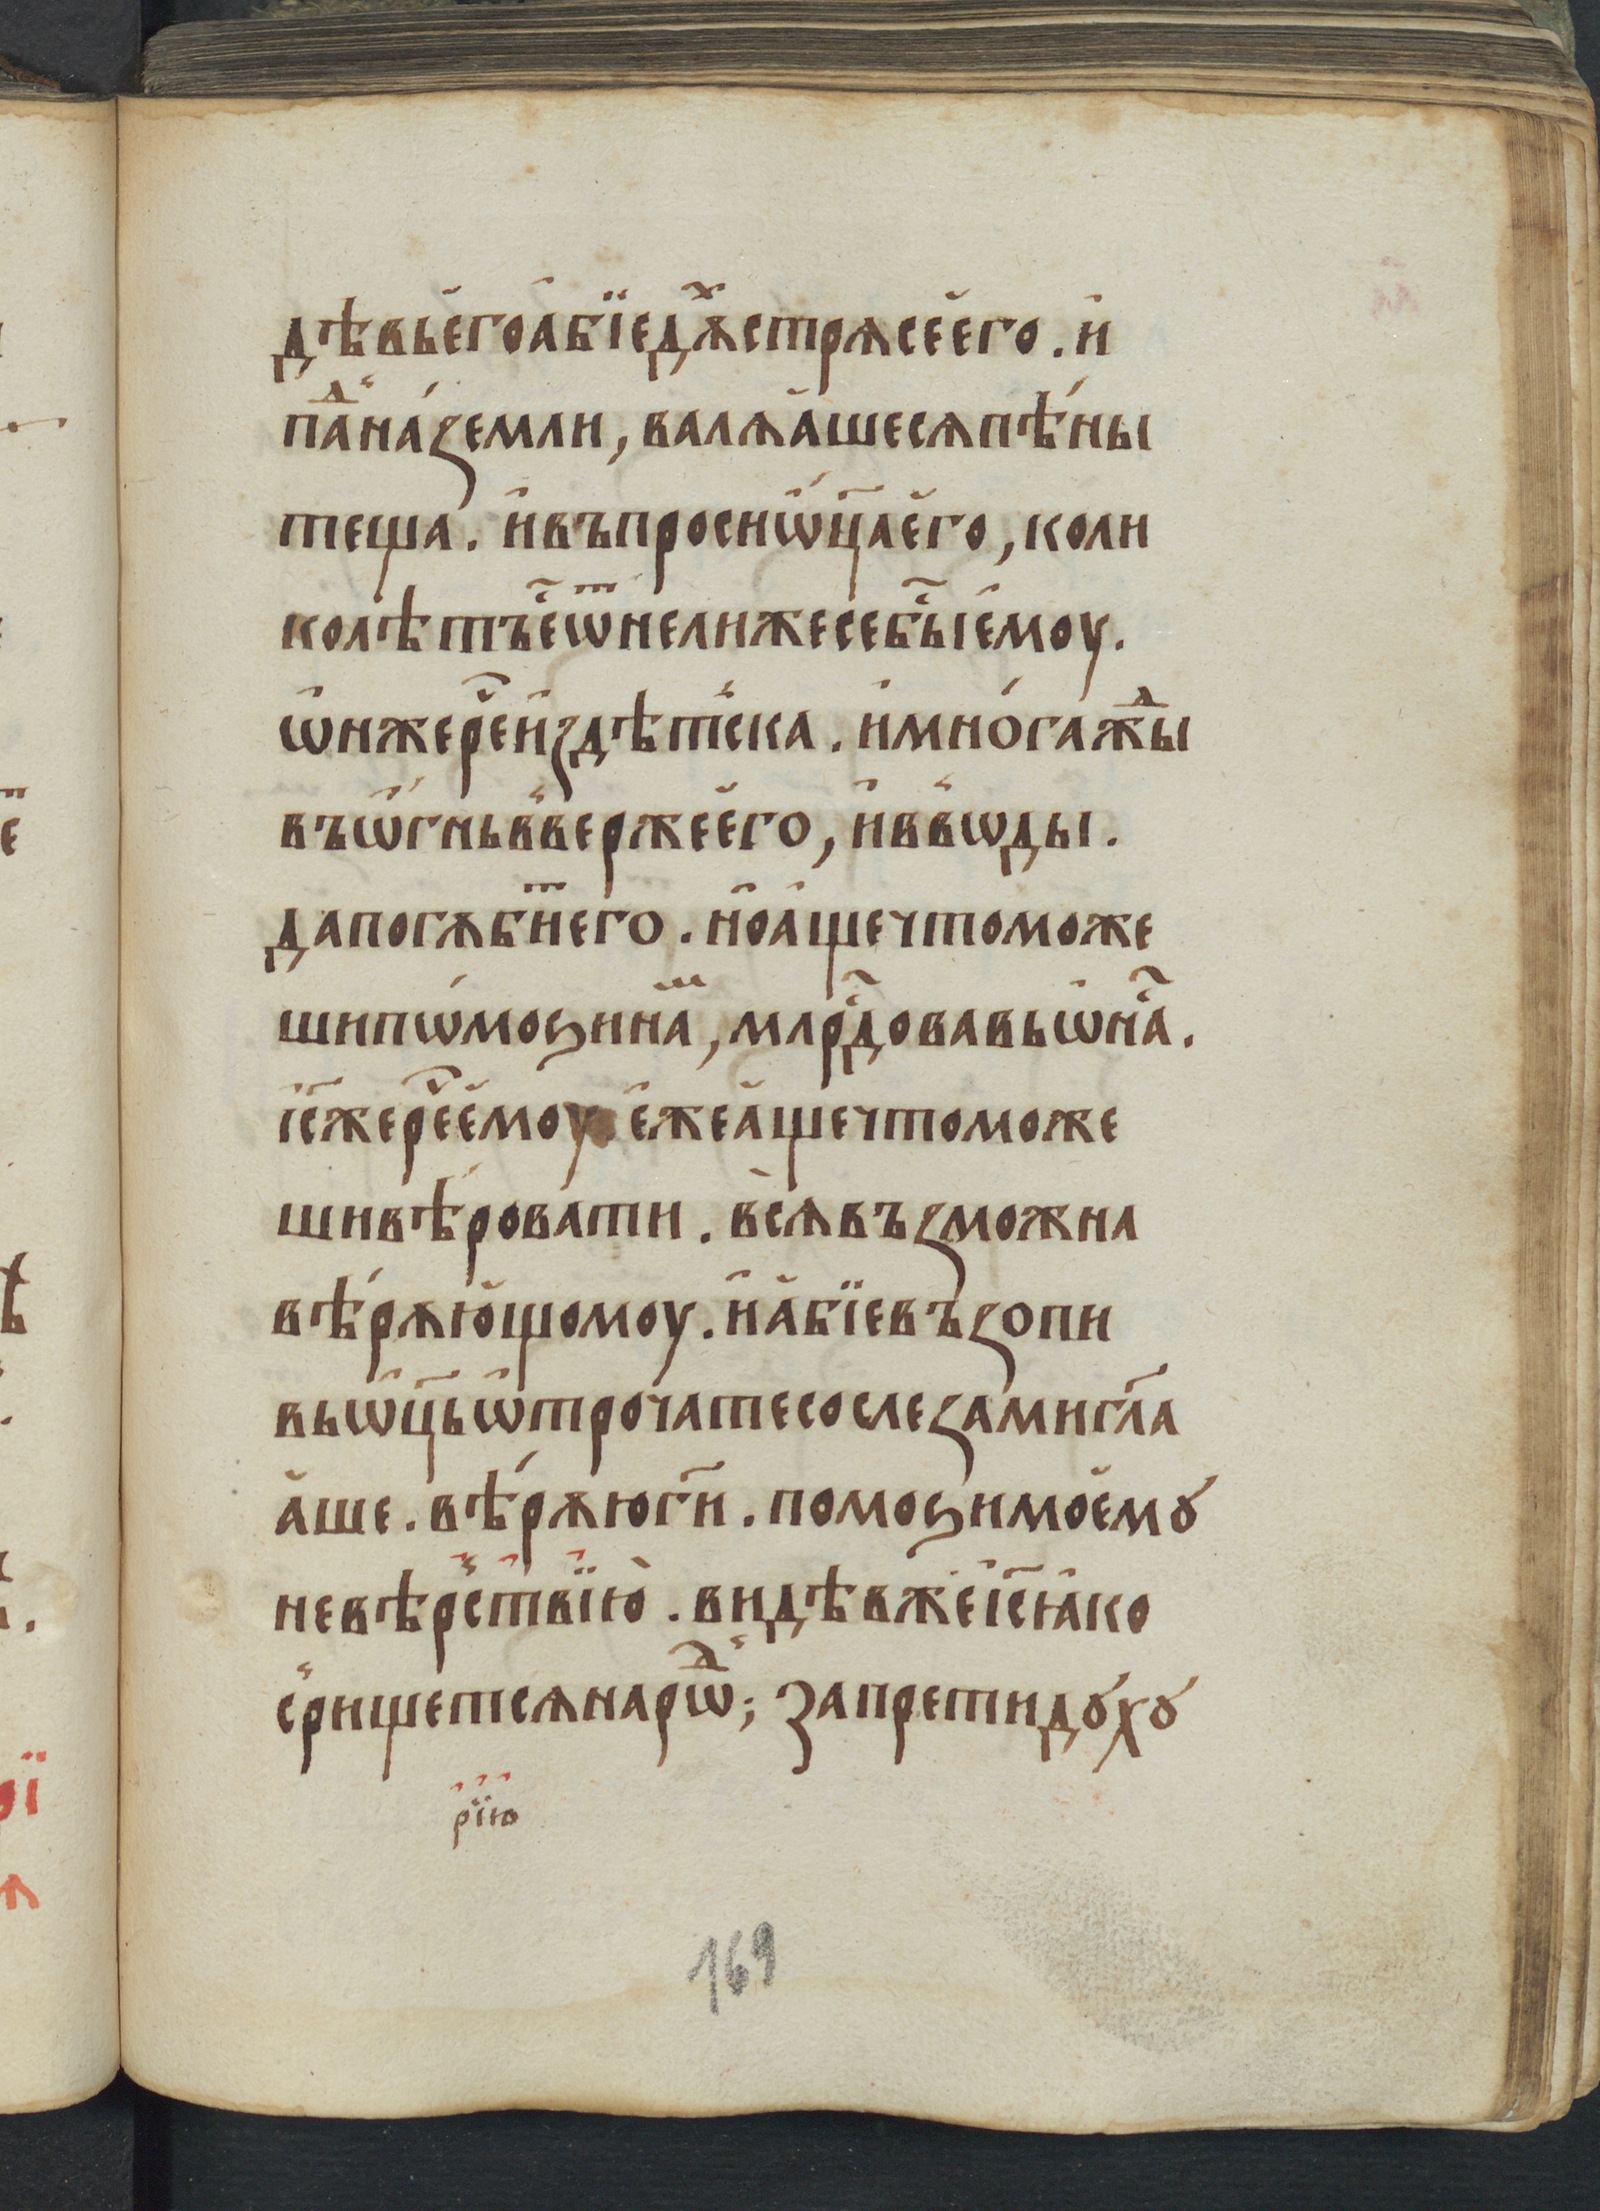 дѣвьегоа҆бїедꙗⷯстрѧсеего. и҆
паⷣна́ꙁемли, валѧа҆шесѧпѣ́ны
теща. и҆въпросиѡ҆ц҃аего, коли
колѣтъⷭ҇еѿнелижесебыⷭ҇іемоу.
ѡ҆нжерⷱ҇еиꙁдѣтска. и҆мно́гажⷣы
въѡ҆гньввержеего, и҆ввѡды.
дапогѧбиⷮего. но҆а҆щечтоможе
шипѡ́моꙃинаⷨ, млрⷭ҇довавьѡ҆наⷭ҇.
і҃сжерⷱ҇ее҆моу. е҆жеа҆щечтоможе
шивѣ́ровати. всѧвъꙁможна
вѣ́рѧю҆щомоу. и҆а҆бїевъꙁопи
вьѡ҆ц҃ьѡ҆трочатесослеꙁамигл҃а
а҆ше. вѣ́рѧюг҃и. помоꙃимоемꙋ
невѣрствїю̀. видѣвжеі҃сꙗ҆ко
срищетсѧнарѡⷣ; Запретидꙋхꙋ
рїю
169